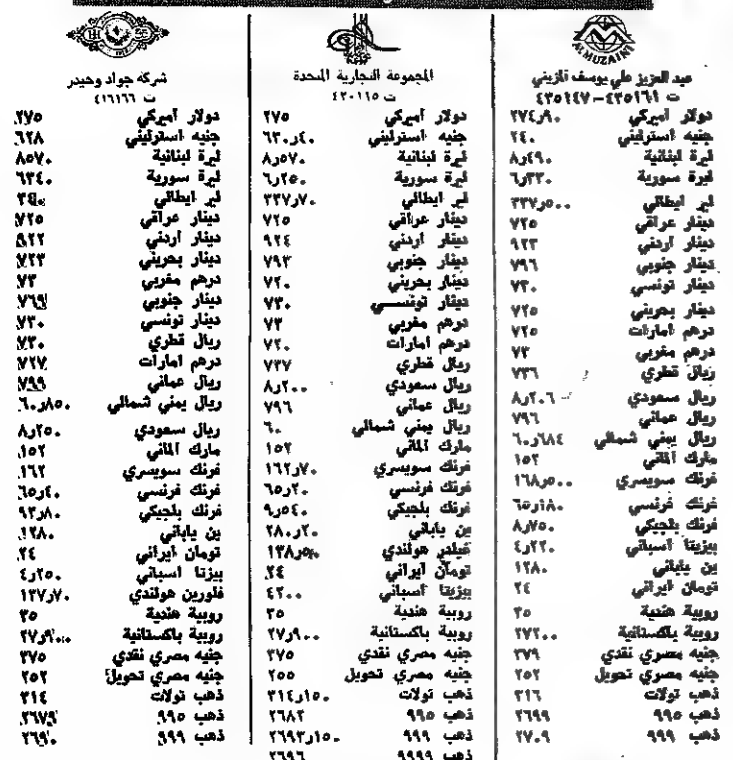 ALMUZAINI
عبد العزيز علي يوسف المزيني
ت ٤٣٥١٦١ – ٤٣٥١٤٧
دولار أميركي ٢٧٤٫٩٠
جنيه استرليني
ليرة لبنانية ٨٫٤٩٠
ليرة سورية ٦٫٣٣٠
لير ايطالي ٣٣٧٫٥٠٠
دينار عراقي ٧٢٥
دينار أردني ٩٢٣
دينار جنوبي ٧٩٦
دينار تونسي ٧٣٠
دينار بحريني ٧٢٥
درهم امارات ٧٢٥
درهم مغربي ٧٣
ريال قطري ٧٣٦
ريال سعودي ٨٫٢٠٦
ريال عماني ٧٩٦
ريال يمني شمالي ٦٠٫٦٨٤
مارك ألماني ١٥٢
فرنك سويسري ١٦٨٫٥٠٠
فرنك فرنسي ٦٥٫١٨٠
فرنك بلجيكي ٨٫٧٥٠
بيزيتا أسباني ٤٫٢٢٠
ين ياباني ١٢٨٠
تومان ايراني ٢٤
روبية هندية ٣٥
روبية باكستانية ٢٧٢٠٠
جنيه مصري نقدي ٣٧٩
جنيه مصري تحويل ٢٥٢
ذهب تولات ٣١٦
ذهب ٩٩٥ ٢٦٩٩
ذهب ٩٩٩ ٢٧٠٩
المجموعة التجارية المتحدة
ت ٤٣٠١١٥
دولار أميركي ٢٧٥
جنيه استرليني ٦٣٠٫٤٠
ليرة لبنانية ٨٫٠٥٧٠
ليرة سورية ٦٫٢٥٠
لير ايطالي ٣٣٧٫٧٠
دينار عراقي ٧٢٥
دينار أردني ٩٢٤
دينار جنوبي ٧٩٣
دينار بحريني ٧٢٠
دينار تونسي ٧٣٠
درهم مغربي ٧٣
درهم امارات ٧٢٠
ريال قطري ٧٣٧
ريال سعودي ٨٫٢٠٠
ريال عماني ٧٩٦
ريال يمني شمالي ٦٠
مارك ألماني ١٥٢
فرنك سويسري ١٦٢٫٧٠
فرنك فرنسي ٦٥٫٢٠
فرنك بلجيكي ٩٫٥٤٠
ين ياباني ٢٨٠٫٢٠
غيلدر هولندي
تومان ايراني ٢٤
بيزيتا أسباني ٤٢٠٠
روبية هندية ٣٥
روبية باكستانية ٢٧٫٩٠٠
جنيه مصري نقدي ٣٧٥
جنيه مصري تحويل ٢٥٥
ذهب تولات ٣١٤٫١٥٠
ذهب ٩٩٥ ٢٦٨٢
ذهب ٩٩٩ ٢٦٩٣٫١٥٠
ذهب ٩٩٩٩ ٢٦٩٦
شركة جواد وحيدر
ت ٤١٦١٦٦
دولار أميركي ٢٧٥
جنيه استرليني ٦٢٨
ليرة لبنانية ٨٥٧٠
ليرة سورية ٦٣٤٠
لير ايطالي
دينار عراقي ٧٢٥
دينار أردني ٩٢٢
دينار بحريني ٧٢٣
درهم مغربي ٧٣
دينار جنوبي ٧٦٩
دينار تونسي ٧٣٠
ريال قطري ٧٣٠
درهم امارات ٧٢٧
ريال عماني ٧٩٩
ريال يمني شمالي ٦٠٫٨٥٠
ريال سعودي ٨٫٢٥٠
مارك ألماني ١٥٢
فرنك سويسري ١٦٢
فرنك فرنسي ٦٥٫٤٠
فرنك بلجيكي ٩٣٫٨٠
ين ياباني ١٢٨٠
تومان ايراني ٢٤
بيزتا اسباني ٤٫٢٥٠
فلورين هولندي ١٣٧٫٧٠
روبية هندية ٣٥
روبية باكستانية
جنيه مصري نقدي ٣٧٥
جنيه مصري تحويل ٢٥٢
ذهب تولات ٣١٤
ذهب ٩٩٥ ٢٦٧٩
ذهب ٩٩٩ ٢٦٩٠